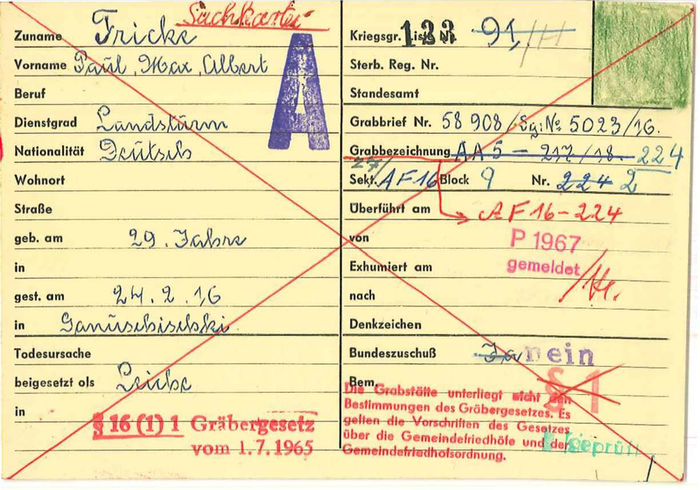 Sachkartei
Zuname Fricke
Vorname Paul, Max, Albert
Beruf
Dienstgrad Landsturm
Nationalität Deutsch
Wohnort
Straße
geb. am 29 Jahre
in
gest. am 24.2.16
in
Todesursache
beigesetzt als Leiche
in
§ 16 (1) 1 Gräbergesetz
vom 1.7.1965
A
Kriegsgr. Liste Nr. 123 91,
Sterb. Reg. Nr.
Standesamt
Grabbrief Nr. 58 908/Sg: № 5023/16.
Grabbezeichnung AA 5 - 217/18 - 224
27/
Sekt. AF16 Block 9 Nr. 224 2
Überführt am AF 16-224
von P 1967
gemeldet
Exhumiert am
nach
Denkzeichen
Bundeszuschuß Ja nein
Bem. § 1
Die Grabstätte unterliegt nicht den
Bestimmungen des Gräbergesetzes. Es
gelten die Vorschriften des Gesetzes
über die Gemeindefriedhöfe und der
Gemeindefriedhofsordnung.
Geprüft